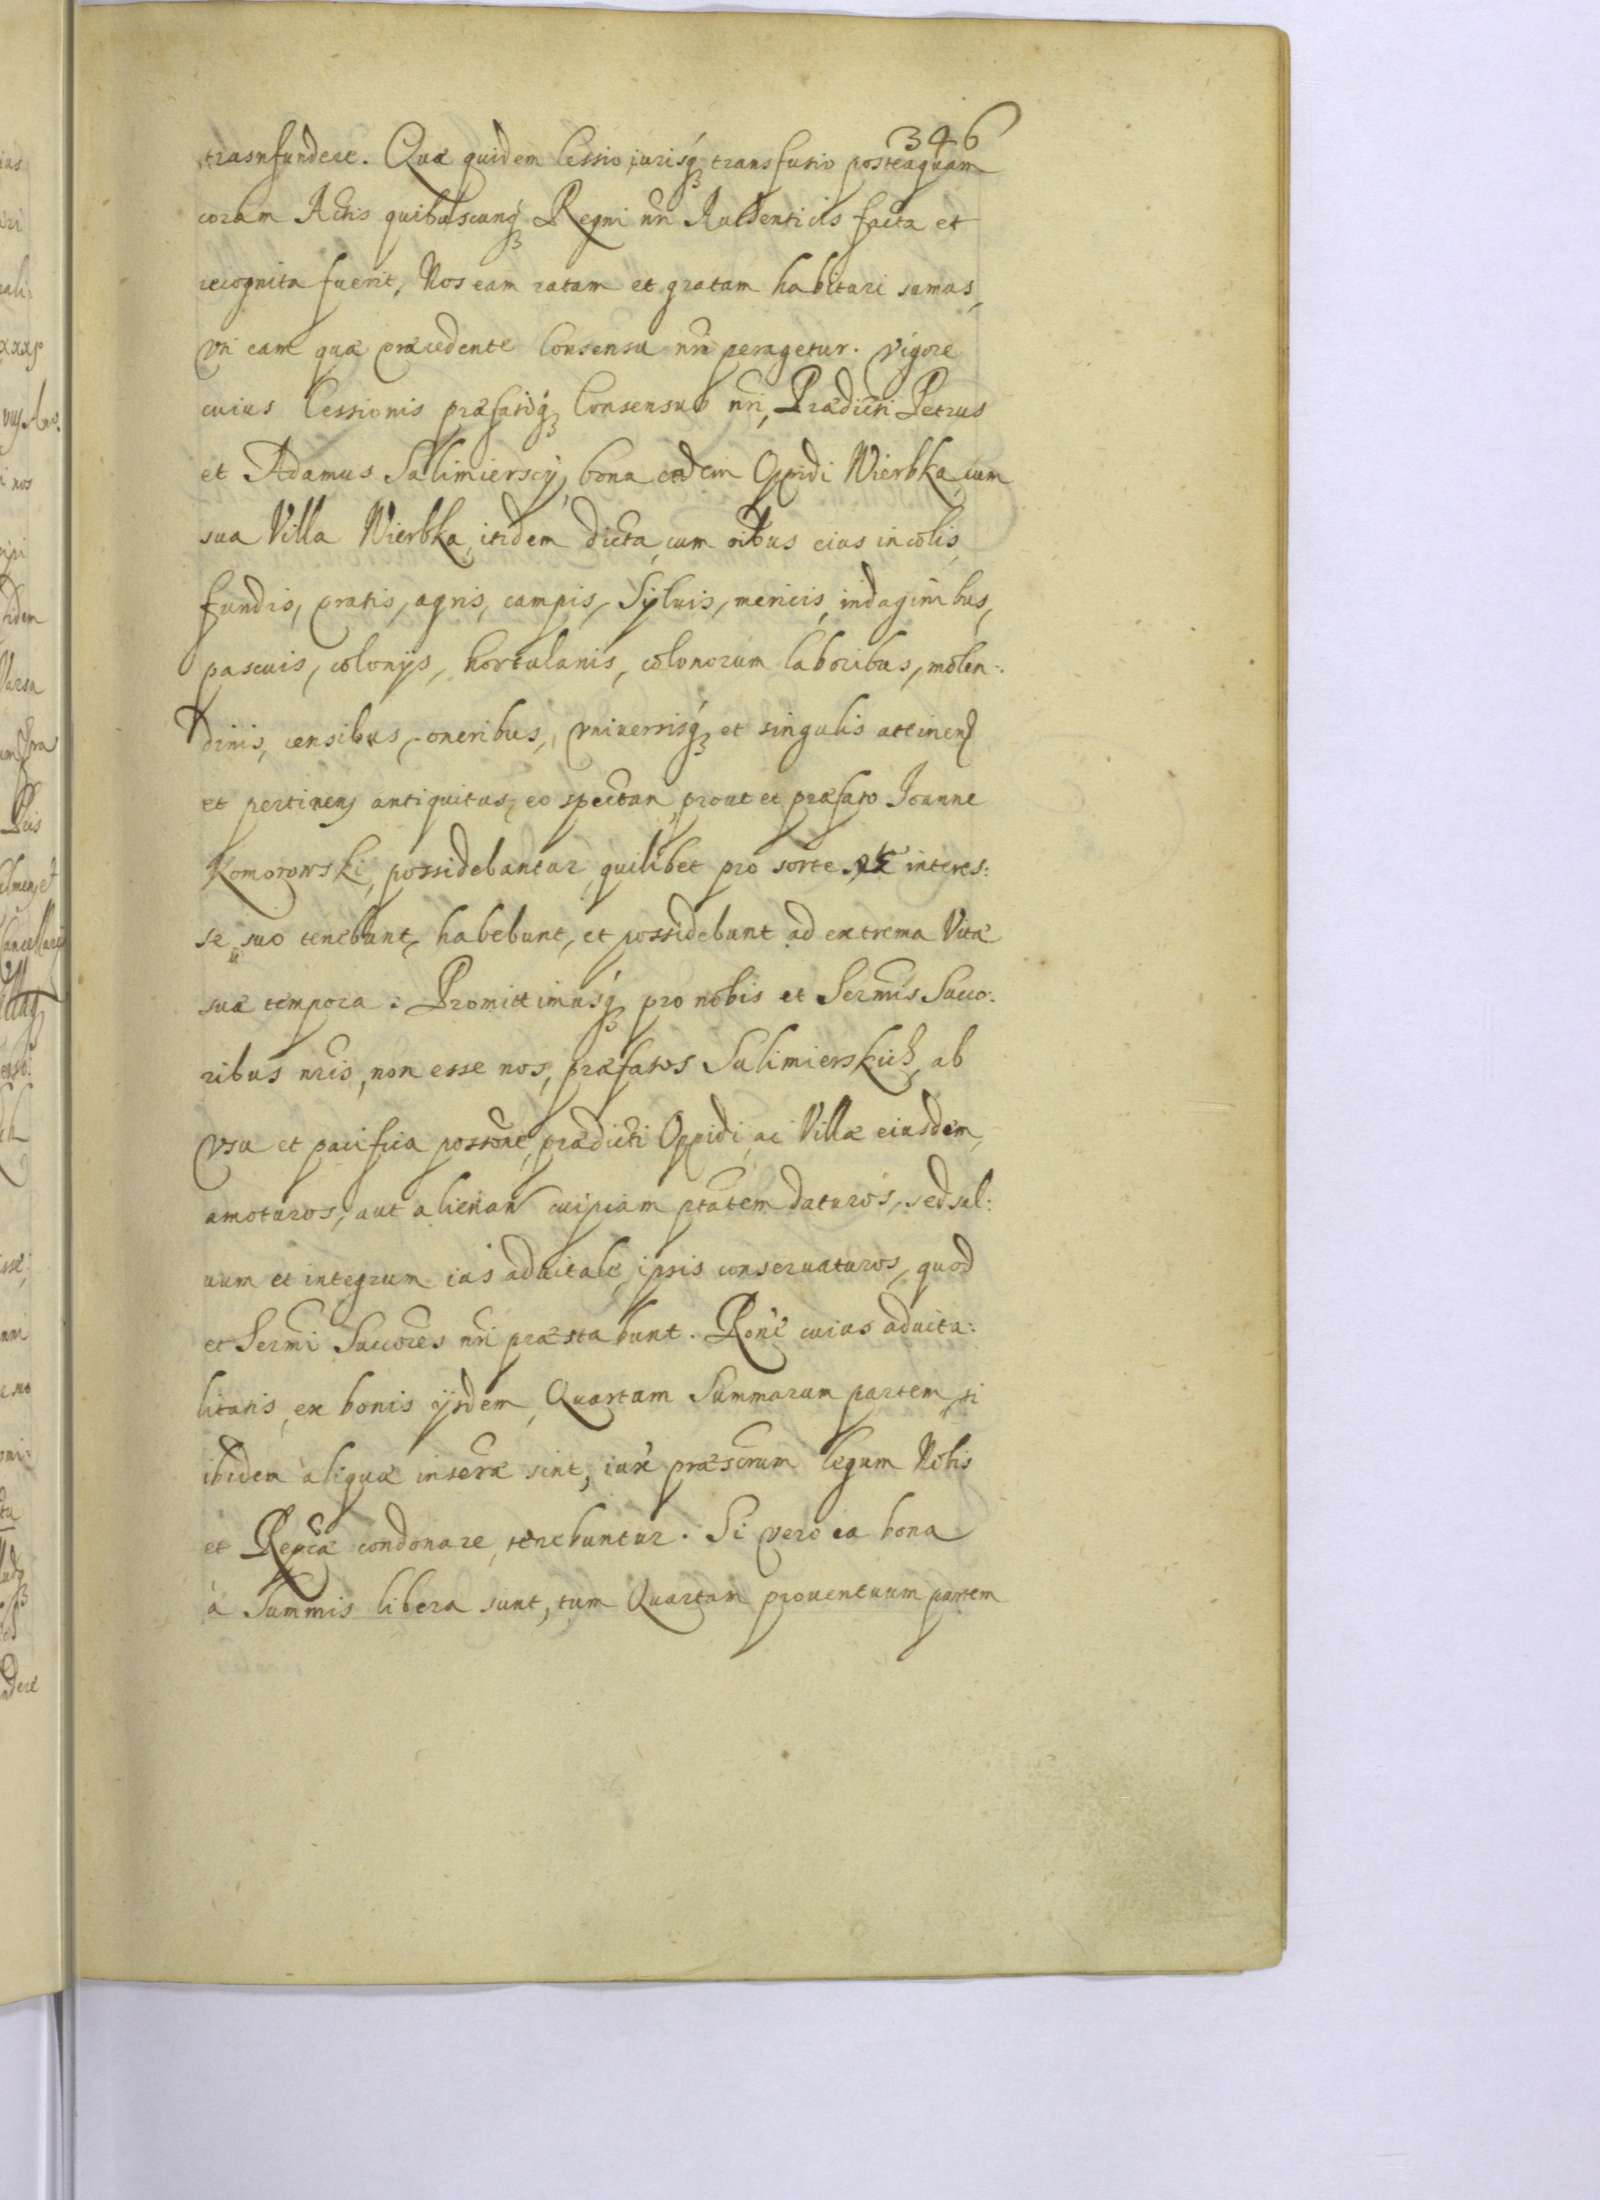 346
trasnfundere. Quæ quidem Cessio iurisq; transfusio posteaquam
coram Actis quibuscunq; Regni nri Authenticis facta et
recognita fuerit, Nos eam ratam et gratam habituri sumus,
Vti eam quæ præcedente Consensu nro peragetur. Vigore
cuius Cessionis præfatiq; Consensus nri, Prædicti Petrus
et Adamus Sulimierscy, bona eadem Oppidi Wierbka, cum
sua Villa Wierbka, itidem dicta, cum oibus eius incolis,
fundis, pratis, agris, campis, Syluis, mericis, indaginibus,
pascuis, colonijs, hortulanis, colonorum laboribus, molen:
dinis, censibus, oneribus, vniuersisq; et singulis attinen
et pertinen antiquitus, eo spectan prout et præfato Joanne
Komorowski, possidebantur, quilibet pro sorte et interes:
se suo tenebunt, habebunt, et possidebunt ad extrema Vitæ
suæ tempora. Promittimusq; pro nobis et Sermis Succo:
ribus nris, non esse nos, præfatos Sulimierskich, ab
vsu et pacifica possone, prædicti Oppidi, ac Villæ eiusdem,
amoturos, aut alienan cuipiam ptatem daturos, sed sal:
uum et integrum ius aduitale, ipsis conseruaturos, quod
et Sermi Succores nri præstabunt. Rone cuius aduita:
litatis, ex bonis ijsdem, Quartam Summarum partem, si
ibidem aliquæ inscræ sint, iuxt præscrum legum Nobis
et Reipcæ condonare, tenebuntur. Si vero ea bona
à Summis libera sunt, tum Quartam prouentuum partem